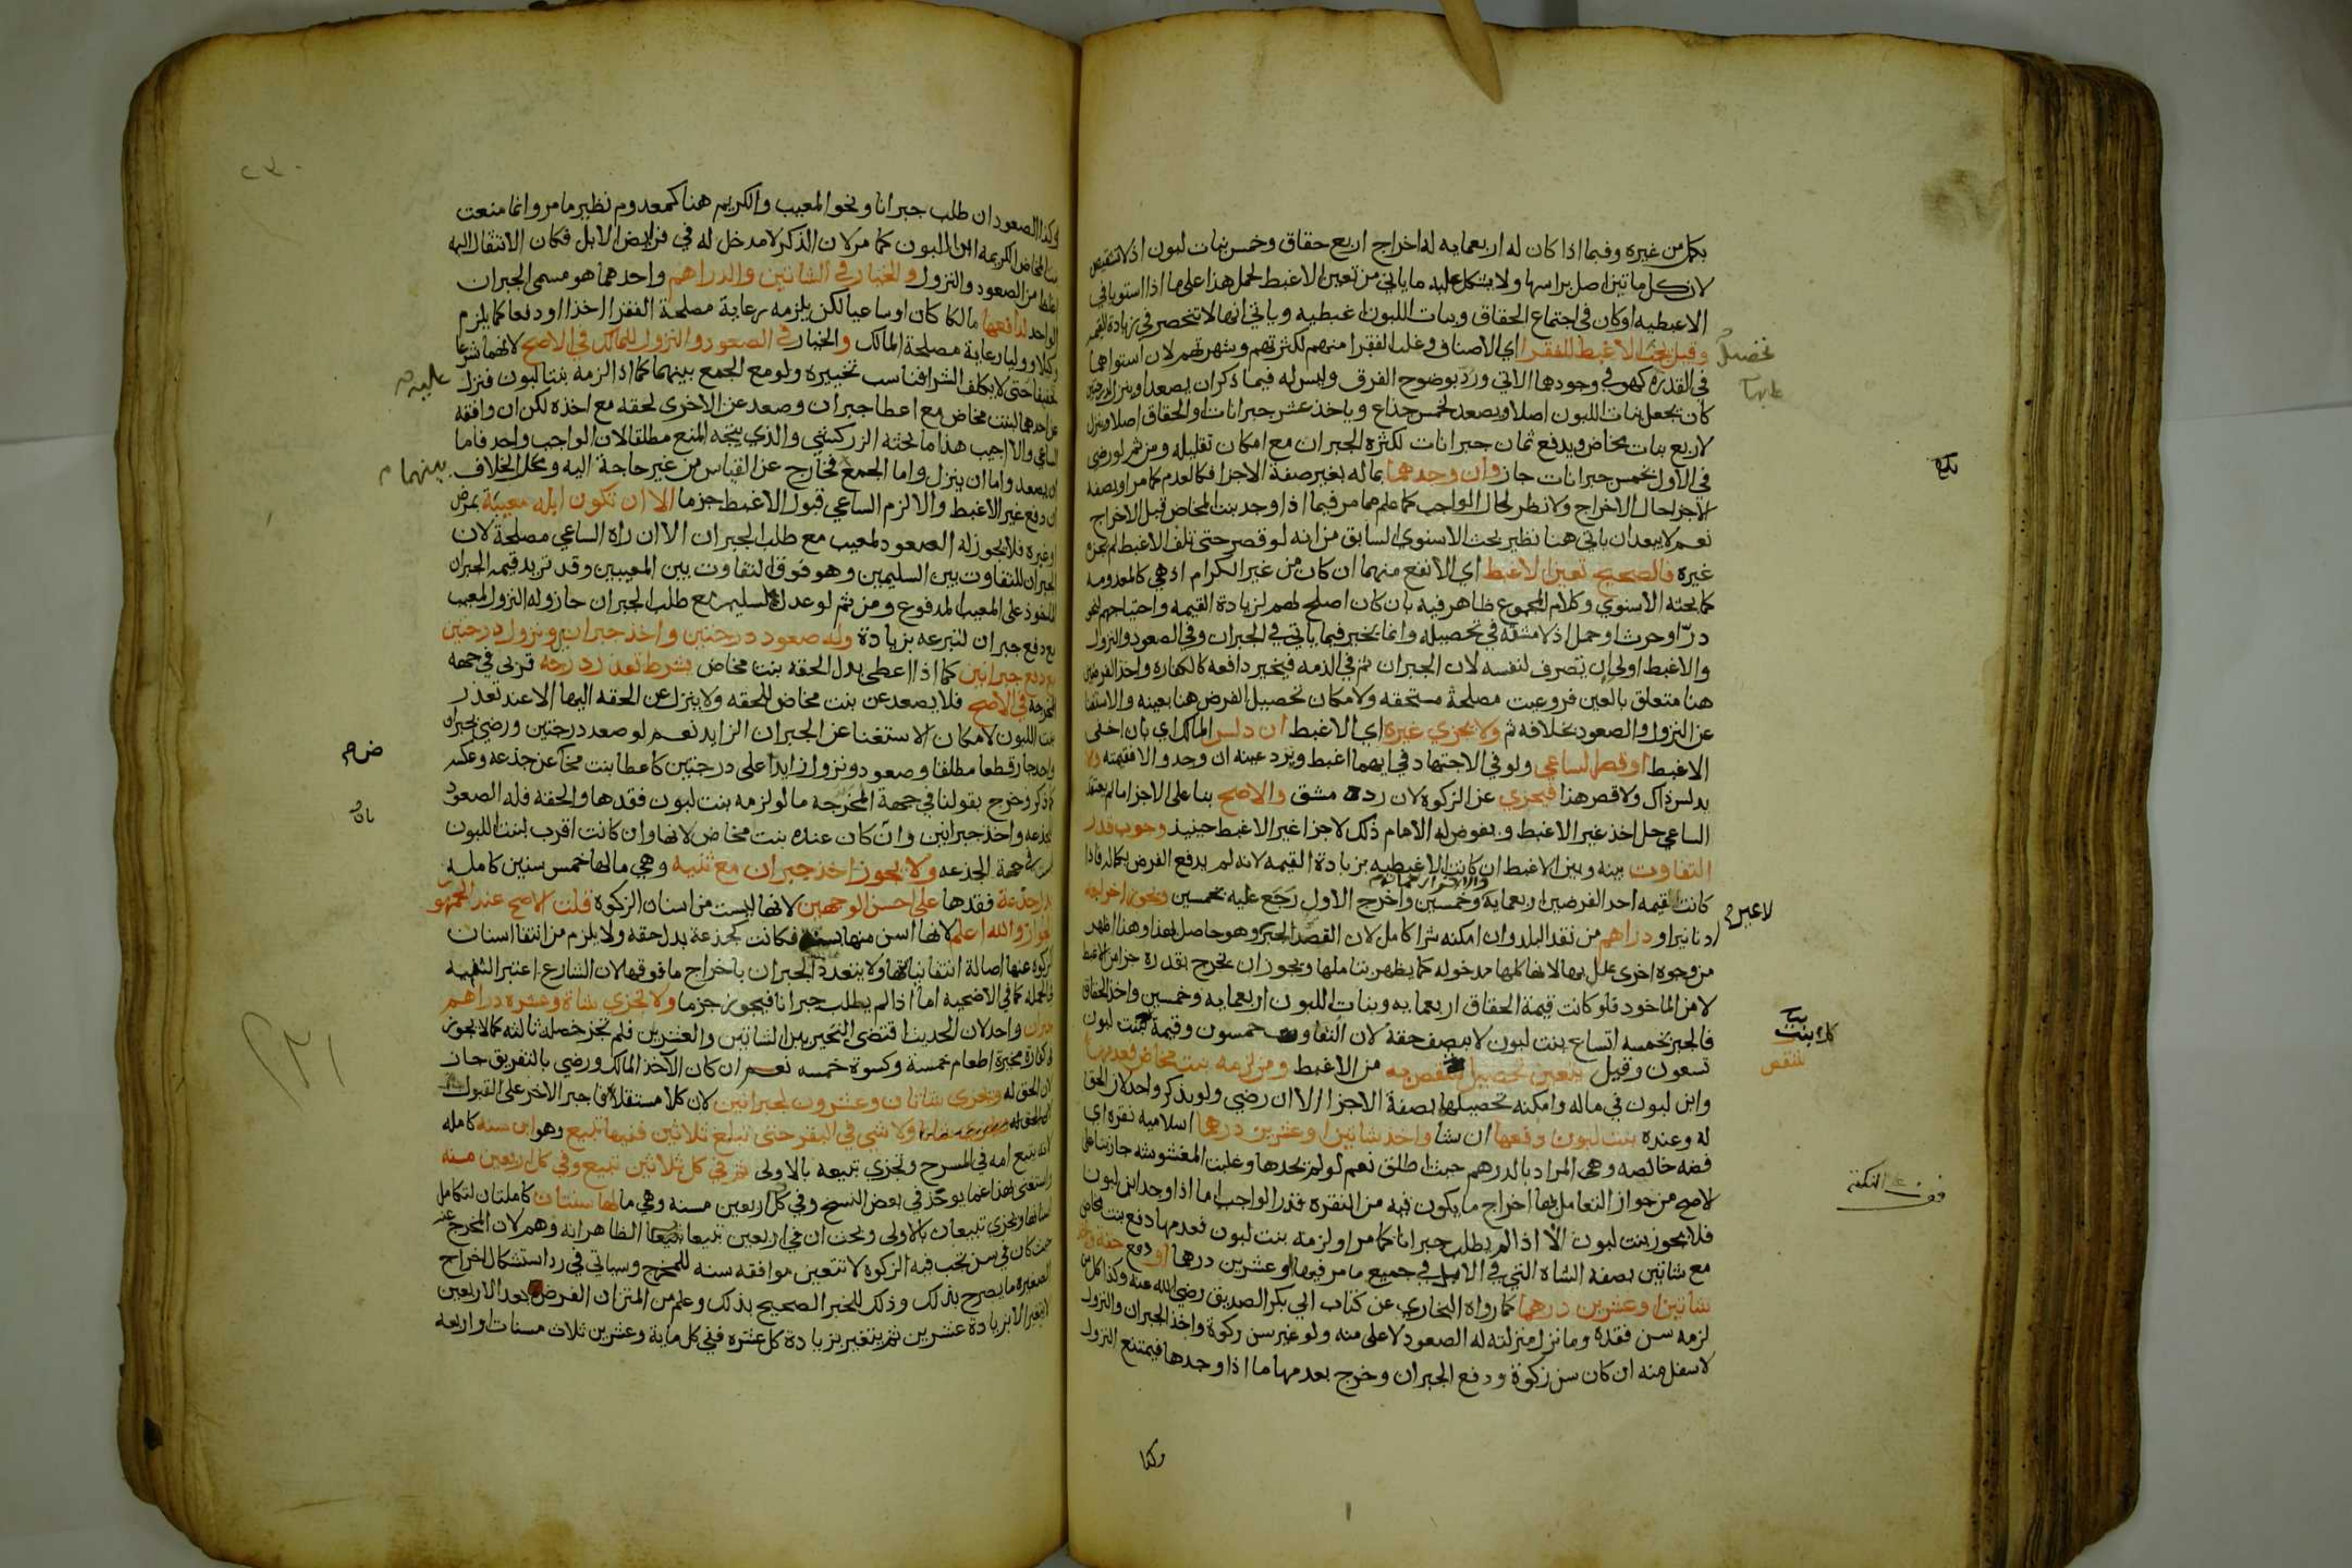 بكل من غيره وفيما اذا كان له اربعمايه له اخراج اربع حقاق وخمس بنات لبون اذ لا تشقيص
لان كل ماتين اصل براسها ولا يشكل عليه ما ياتي من تعين الاغبط لحمل هذا على ما اذا استويا في
الاغبطيه او كان في اجتماع الحقاق وبنات اللبون اغبطيه وياتي انها لا تنحصر في زيادة القيمه
وقيل يجب الاغبط للفقرا اي الاصناف وغلب الفقرا منهم لكثرتهم وشهرتهم لان استواهما
في القدرة كهو في وجودهما الاتي ورد بوضوح الفرق وليس له فيما ذكر ان يصعد او ينزل
كان يجعل بنات اللبون اصلا ويصعد لخمس جذاع وياخذ عشر جبرانات او الحقاق اصلا وينزل
لاربع بنات مخاض ويدفع ثمان جبرانات لكثرة الجبران مع امكان تقليله ومن ثم لو رضي
في الاول بخمس جبرانات جاز وان وجدهما بماله بغير صفة الاجزا فكالعدم كما مر او بصفة
الاجزا حال الاخراج ولا نظر لحال الواجب كما علم مما مر فيما اذا وجد بنت المخاض قبل الاخراج
نعم لا يبعد ان ياتي هنا نظير بحث الاسنوي السابق من انه لو قصر حتى تلف الاغبط لم يجزه
غيره فالصحيح تعين الاغبط اي الانفع منهما ان كان من غير الكرام اذ هي كالمعدومه
كما بحثه الاسنوي وكلام المجموع ظاهر فيه بان كان اصلح لهم لزيادة القيمه واحتياجهم لنحو
در او حرث او حمل اذ لا مشقة في تحصيله وانما يخير فيما ياتي في الجبران وفي الصعود والنزول
والاغبط اولى ان تصرف لنفسه لان الجبران ثم في الذمه فيخير دافعه كالكفاره واحد الفرضين
هنا متعلق بالعين فروعيت مصلحة مستحقه ولامكان تحصيل الفرض هنا بعينه والاستغنا
عن النزول والصعود بخلافه ثم ولا يجزي غيره اي الاغبط ان دلس المالك اي بان اخفى
الاغبط او قصر الساعي ولو في الاجتهاد في ايهما اغبط ويرد عينه ان وجد والا فقيمته والا
يدلس ذاك ولا قصر هذا فيجزي عن الزكوة لان رده مشق والاصح بنا على الاجزا ما لم يعتقد
الساعي حل اخذ غير الاغبط ويفوض له الامام ذلك لاجزا غير الاغبط حينيذ وجوب قدر
التفاوت بينه وبين الاغبط ان كانت الاغبطيه بزيادة القيمه لانه لم يدفع الفرض بكماله فاذا
كانت القيمه احد الفرضين اربعمايه وخمسين واخرج الاول رجع عليه بخمسين ويجوز اخراجه
دنانير او دراهم من نقد البلد وان امكنه شرا كامل لان القصد الجبر وهو حاصل بهذا وهذا اظهر
من وجوه اخرى علل بها لانها كلها مدخوله كما يظهر بتاملها ويجوز ان يخرج بقدره جزا من الاغبط
لا من الماخوذ فلو كانت قيمة الحقاق اربعمايه وبنات اللبون اربعمايه وخمسين واخذ الحقاق
فالجبر بخمسه اتساع بنت لبون لا بنصف حقه لان التفاوت خمسون وقيمة بنت لبون
تسعون وقيل يتعين تحصيل شقص به من الاغبط ومن لزمه بنت مخاض فعدمها
وابن لبون في ماله وامكنه تحصيلها بصفة الاجزا الا ان رضي ولو بذكر واحد لان الحق
له وعنده بنت لبون دفعها ان شا واخذ شاتين او عشرين درهما اسلاميه نقره اي
فضه خالصه وهي المراد بالدرهم حيث اطلق نعم لو لم يجدها وغلبت المغشوشه جاز بنا على
الاصح من جواز التعامل بها اخراج ما يكون فيه من النقره قدر الواجب اما اذا وجد ابن لبون
فلا يجوز بنت لبون الا اذا لم يطلب جبرانا كما مر او لزمه بنت لبون فعدمها دفع بنت مخاض
مع شاتين بصفه الشاه التي في الابل في جميع ما مر فيها او عشرين درهما او دفع حقه واخذ
شاتين او عشرين درهما كما رواه البخاري عن كتاب ابي بكر الصديق رضي الله عنه وكذا كل من
لزمه سن فقده وما نزل منزلته له الصعود لاعلى منه ولو غير سن زكوة واخذ الجبران والنزول
لاسفل منه ان كان سن زكوة ودفع الجبران وخرج بعدمها ما اذا وجدها فيمتنع النزول
وكذا
تحصيل
بلغ
لا غير
كل بنت
وكذا الصعود ان طلب جبرانا ونحو المعيب والكريم هنا كمعدوم نظير ما مر وانما منعت
بنت المخاض الكريمه ابن اللبون كما مر لان الذكر لا مدخل له في فرايض الابل فكان الانتقال اليه
اغلظ من الصعود والنزول والخيار في الشاتين والدراهم واحدهما هو مسمى الجبران
الواحد لدافعها مالكا كان او ساعيا لكن يلزمه رعاية مصلحة الفقرا اخذا او دفعا كما يلزم
وكيلا ووليا رعاية مصلحة المالك والخيار في الصعود والنزول للمالك في الاصح لانهما شرعا
تخفيفا حتى لا يكلف الشرا فناسب تخييره ولو مع الجمع بينهما كما اذا لزمه بنتا لبون فنزل
عن احدهما لبنت مخاض مع اعطا جبران وصعد عن الاخرى لحقه مع اخذه لكن ان وافقه
الساعي والا اجيب هذا ما بحثه الزركشي والذي يتجه المنع مطلقا لان الواجب واحد فاما
ان يصعد واما ان ينزل واما الجمع فخارج عن القياس من غير حاجة اليه ومحل الخلاف
ان دفع غير الاغبط والا لزم الساعي قبول الاغبط جزما الا ان تكون ابله معيبة بمرض
او غيره فلا يجوز له الصعود لمعيب مع طلب الجبران الا ان راه الساعي مصلحة لان
الجبران للتفاوت بين السليمين وهو فوق التفاوت بين المعيبين وقد تزيد قيمة الجبران
الماخوذ على المعيب المدفوع ومن ثم لو عدل لسليم مع طلب الجبران جاز وله النزول لمعيب
مع دفع جبران لتبرعه بزيادة وله صعود درجتين واخذ جبرانين ونزول درجتين
مع دفع جبرانين كما اذا اعطى بدل الحقه بنت مخاض بشرط تعذر درجه قربى في جهه
المخرجة في الاصح فلا يصعد عن بنت مخاض للحقه ولا ينزل عن الحقه اليها الا عند تعذر
بنت اللبون لامكان الاستغنا عن الجبران الزايد نعم لو صعد درجتين ورضي بجبران
واحد جاز قطعا مطلقا وصعود ونزول زايدا على درجتين كاعطا بنت مخاض عن جذعه وعكسه
كما ذكر وخرج بقولنا في جهة المخرجه ما لو لزمه بنت لبون فقدها والحقه فله الصعود
لجذعه واخذ جبرانين وان كان عنده بنت مخاض لانها وان كانت اقرب لبنت اللبون
ليست في جهة الجذعه ولا يجوز اخذ جبران مع ثنيه وهي ما لها خمس سنين كامله
بدل جذعة فقدها على احسن الوجهين لانها ليست من اسنان الزكوة قلت الاصح عند الجمهور
الجواز والله اعلم لانها اسن منها بسنة فكانت كجذعة بدل حقه ولا يلزم من انتفا اسنان
الزكوة عنها اصالة انتفا نيابتها ولا يتعدد الجبران باخراج ما فوقها لان الشارع اعتبر الثنيه
في الجمله كما في الاضحيه اما اذا لم يطلب جبرانا فيجوز جزما ولا تجزي شاة وعشره دراهم
جبران واحد لان الحديث اقتضى التخير بين الشاتين والعشرين فلم تجز خصلة ثالثه كما لا يجوز
في كفارة مخيرة اطعام خمسة وكسوة خمسه نعم ان كان الآخذ المالك ورضي بالتفريق جاز
لان الحق له وتجزى شاتان وعشرون لجبرانين لان كلا مستقل فاجبر الاخر على القبول
ولا شي في البقر حتى تبلغ ثلاثين ففيها تبيع وهو ابن سنه كامله
لانه يتبع امه في المسرح وتجزي تبيعه بالاولى ثم في كل ثلاثين تبيع وفي كل اربعين مسنه
واستغنى بهذا عما يوجد في بعض النسخ وفي كل اربعين مسنه وهي ما لها سنتان كاملتان لتكامل
اسنانها ويجزي تبيعان بالاولى وبحث ان في اربعين تبيعا تبيعا الظاهر انه وهم لان المخرج عنه
حيث كان في سن تجب فيه الزكوة لا تتعين موافقه سنه للمخرج وسياتي في رد استشكال اخراج
الصغيره ما يصرح بذلك وذلك للخبر الصحيح بذلك وعلم من المتن ان الفرض بعد الاربعين
لا يتغير الا بزيادة عشرين ثم يتغير بزيادة كل عشره ففي كل ماية وعشرين ثلاث مسنات او اربعه
بينهما